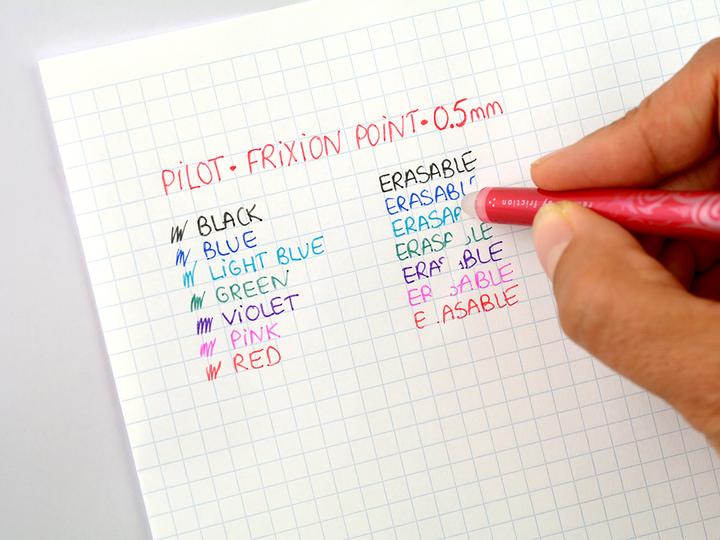 PILOT · FRIXION POINT · 0.5mm
BLACK
BLUE
LIGHT BLUE
GREEN
VIOLET
PINK
RED
ERASABLE
ERASABL
ERASA
ERAS LE
ERA BLE
ER ABLE
E ASABLE
friction